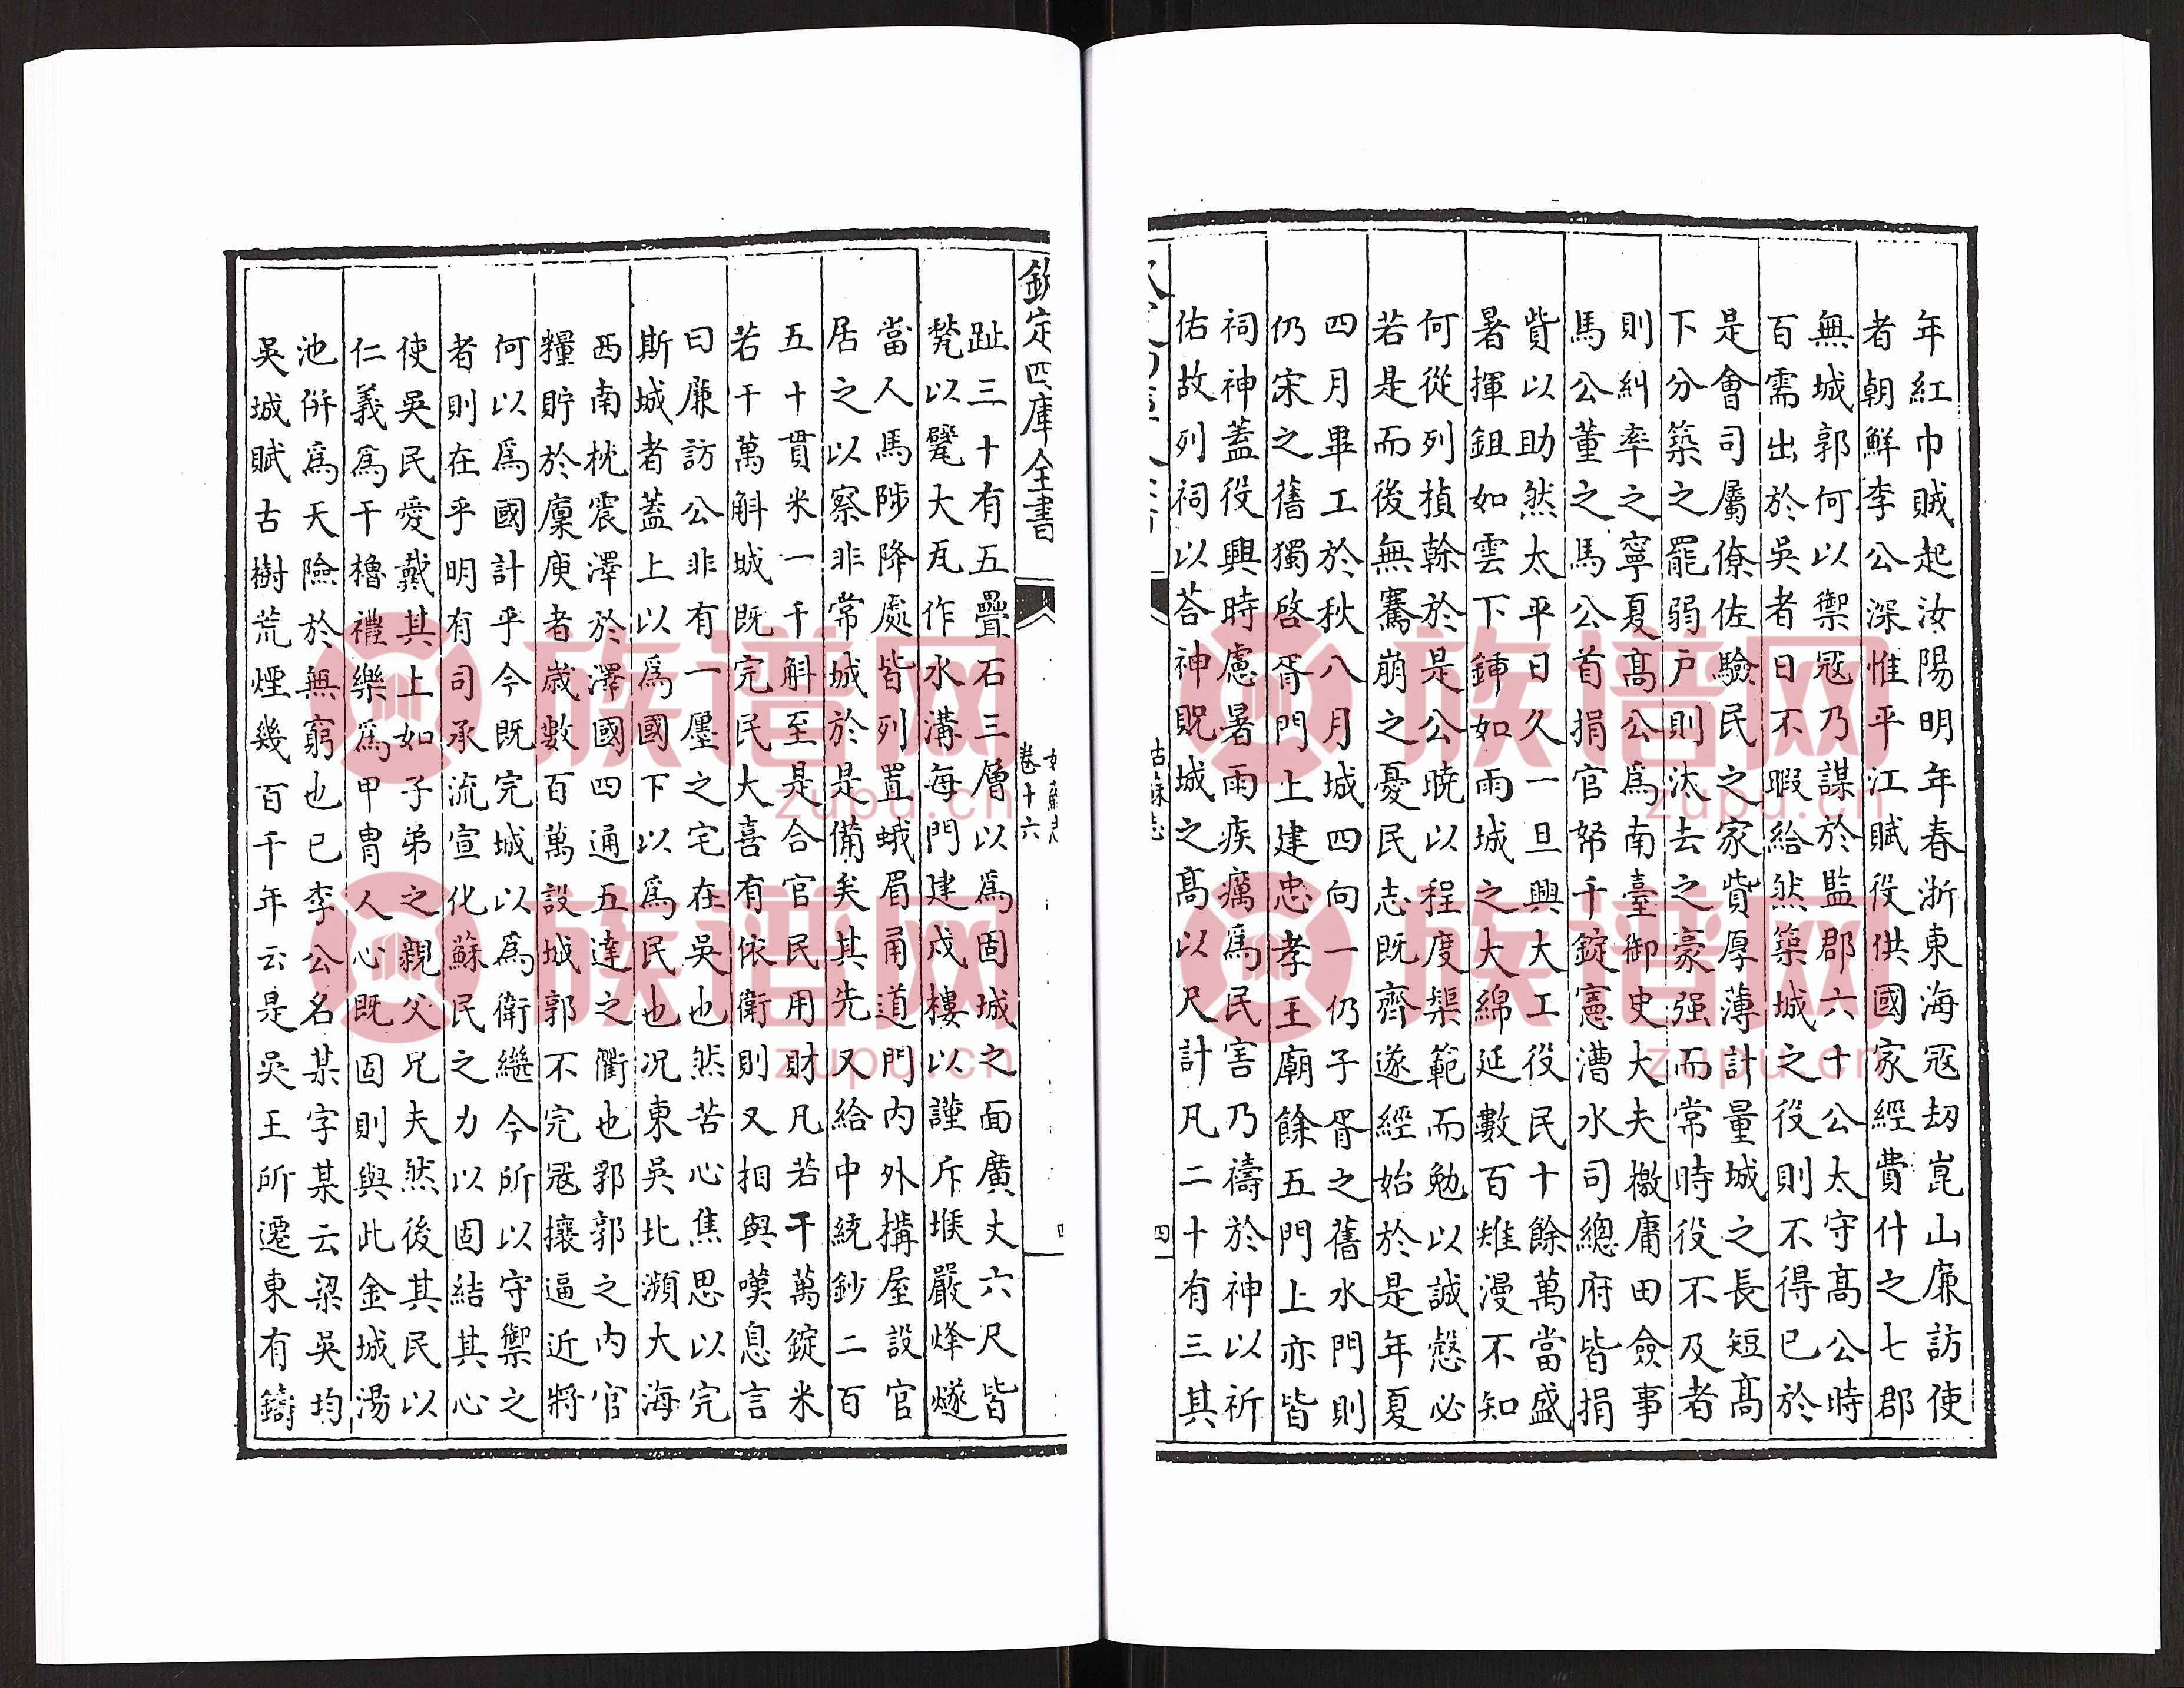 年紅巾賊起汝陽明年年春浙東海寇刼崑山廉訪使
者朝鮮李公深惟平江賦役供國家經費什之七郡
無城郭何以禦冦乃謀於監郡六十公太守髙公時
百需出於吳者日不暇給然築城之役則不得已於
是會司屬僚佐驗民之家貲厚薄計量城之長短髙
下分築之罷弱户則汰去之豪强而常時役不及者
則糾率之寧夏髙公為南臺御史大夫檄庸田僉事
馬公董之馬公首捐官帑千錠憲漕水司總府皆捐
貲以助然太平日久一旦興大工役民十餘萬當盛
暑揮鉏如雲下鍤如雨城之大綿延數百雉漫不知
何從列楨榦於是公曉以程度榘範而勉以誠慤必
若是而後無騫崩之憂民志既齊遂經始於是年夏
四月畢工於秋八月城四向一仍子胥之舊水門則
仍宋之舊獨啓胥門上建忠孝王廟餘五門上亦皆
祠神蓋役興時慮暑雨疾癘為民害乃禱於神以祈
佑故列祠以荅神貺城之髙以尺計凡二十有三其
姑蘇志
四
欽定四庫全書
卷十六
趾三十有五疊石三層以為固城之面廣丈六尺皆
甃以甓大瓦作水溝每門建戍樓以謹斥堠嚴烽燧
當人馬陟降處皆列置蛾眉甬道門内外搆屋設官
居之以察非常城於是備矣其先又給中統鈔二百
五十貫米一千斛至是合官民用財凡若干萬錠米
若干萬斛城既完民大喜有依衛則又相與嘆息言
曰廉訪公非有一廛之宅在吳也然苦心焦思以完
斯城者蓋上以爲國下以爲民也况東吳北瀕大海
西南枕震澤於澤國四通五達之衢也郛郭之内官
糧貯於廩庾者歳數百萬設城郭不完冦攘逼近將
何以爲國計乎今既完城以爲衛繼今所以守禦之
者則在乎明有司承流宣化蘇民之力以固結其心
使吳民愛戴其上如子弟之親父兄夫然後其民以
仁義爲干櫓禮樂爲甲胄人心既固則與此金城湯
池併爲天險於無窮也已李公名某字某云梁吳均
吳城賦古樹荒煙幾百千年云是吳王所遷東有鑄
族谱网
zupu.cn
族谱网
zupu.cn
族谱网
zupu.cn
族谱网
zupu.cn